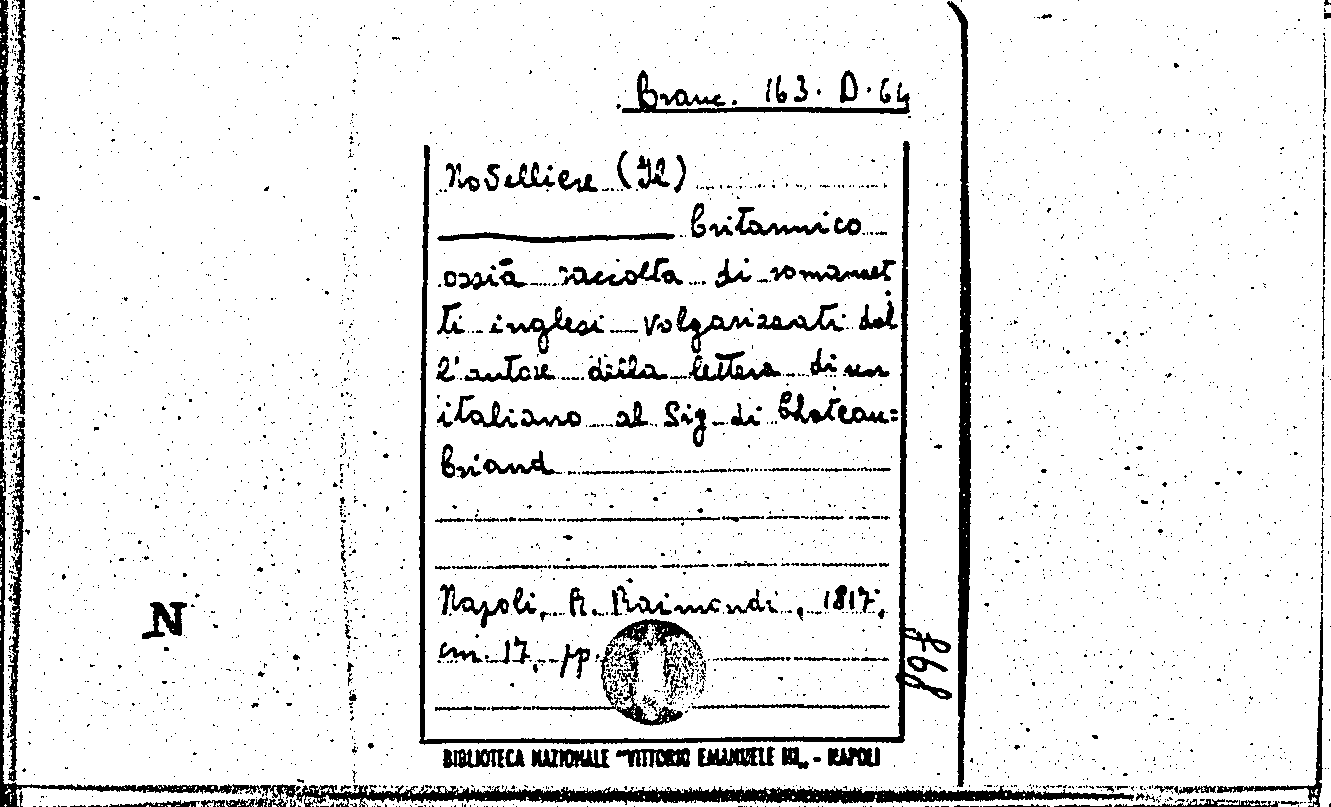 Branc. 163. D. 64
Novelliere (Il)
Britannico
ossia raccolta di romanzet
ti inglesi volgarizzati dal
l'autore della lettera di un
italiano al Sig. di Chateau=
briand
Napoli, A. Raimondi, 1817,
cm. 17, pp.
N
BIBLIOTECA NAZIONALE "VITTORIO EMANUELE III„ - NAPOLI